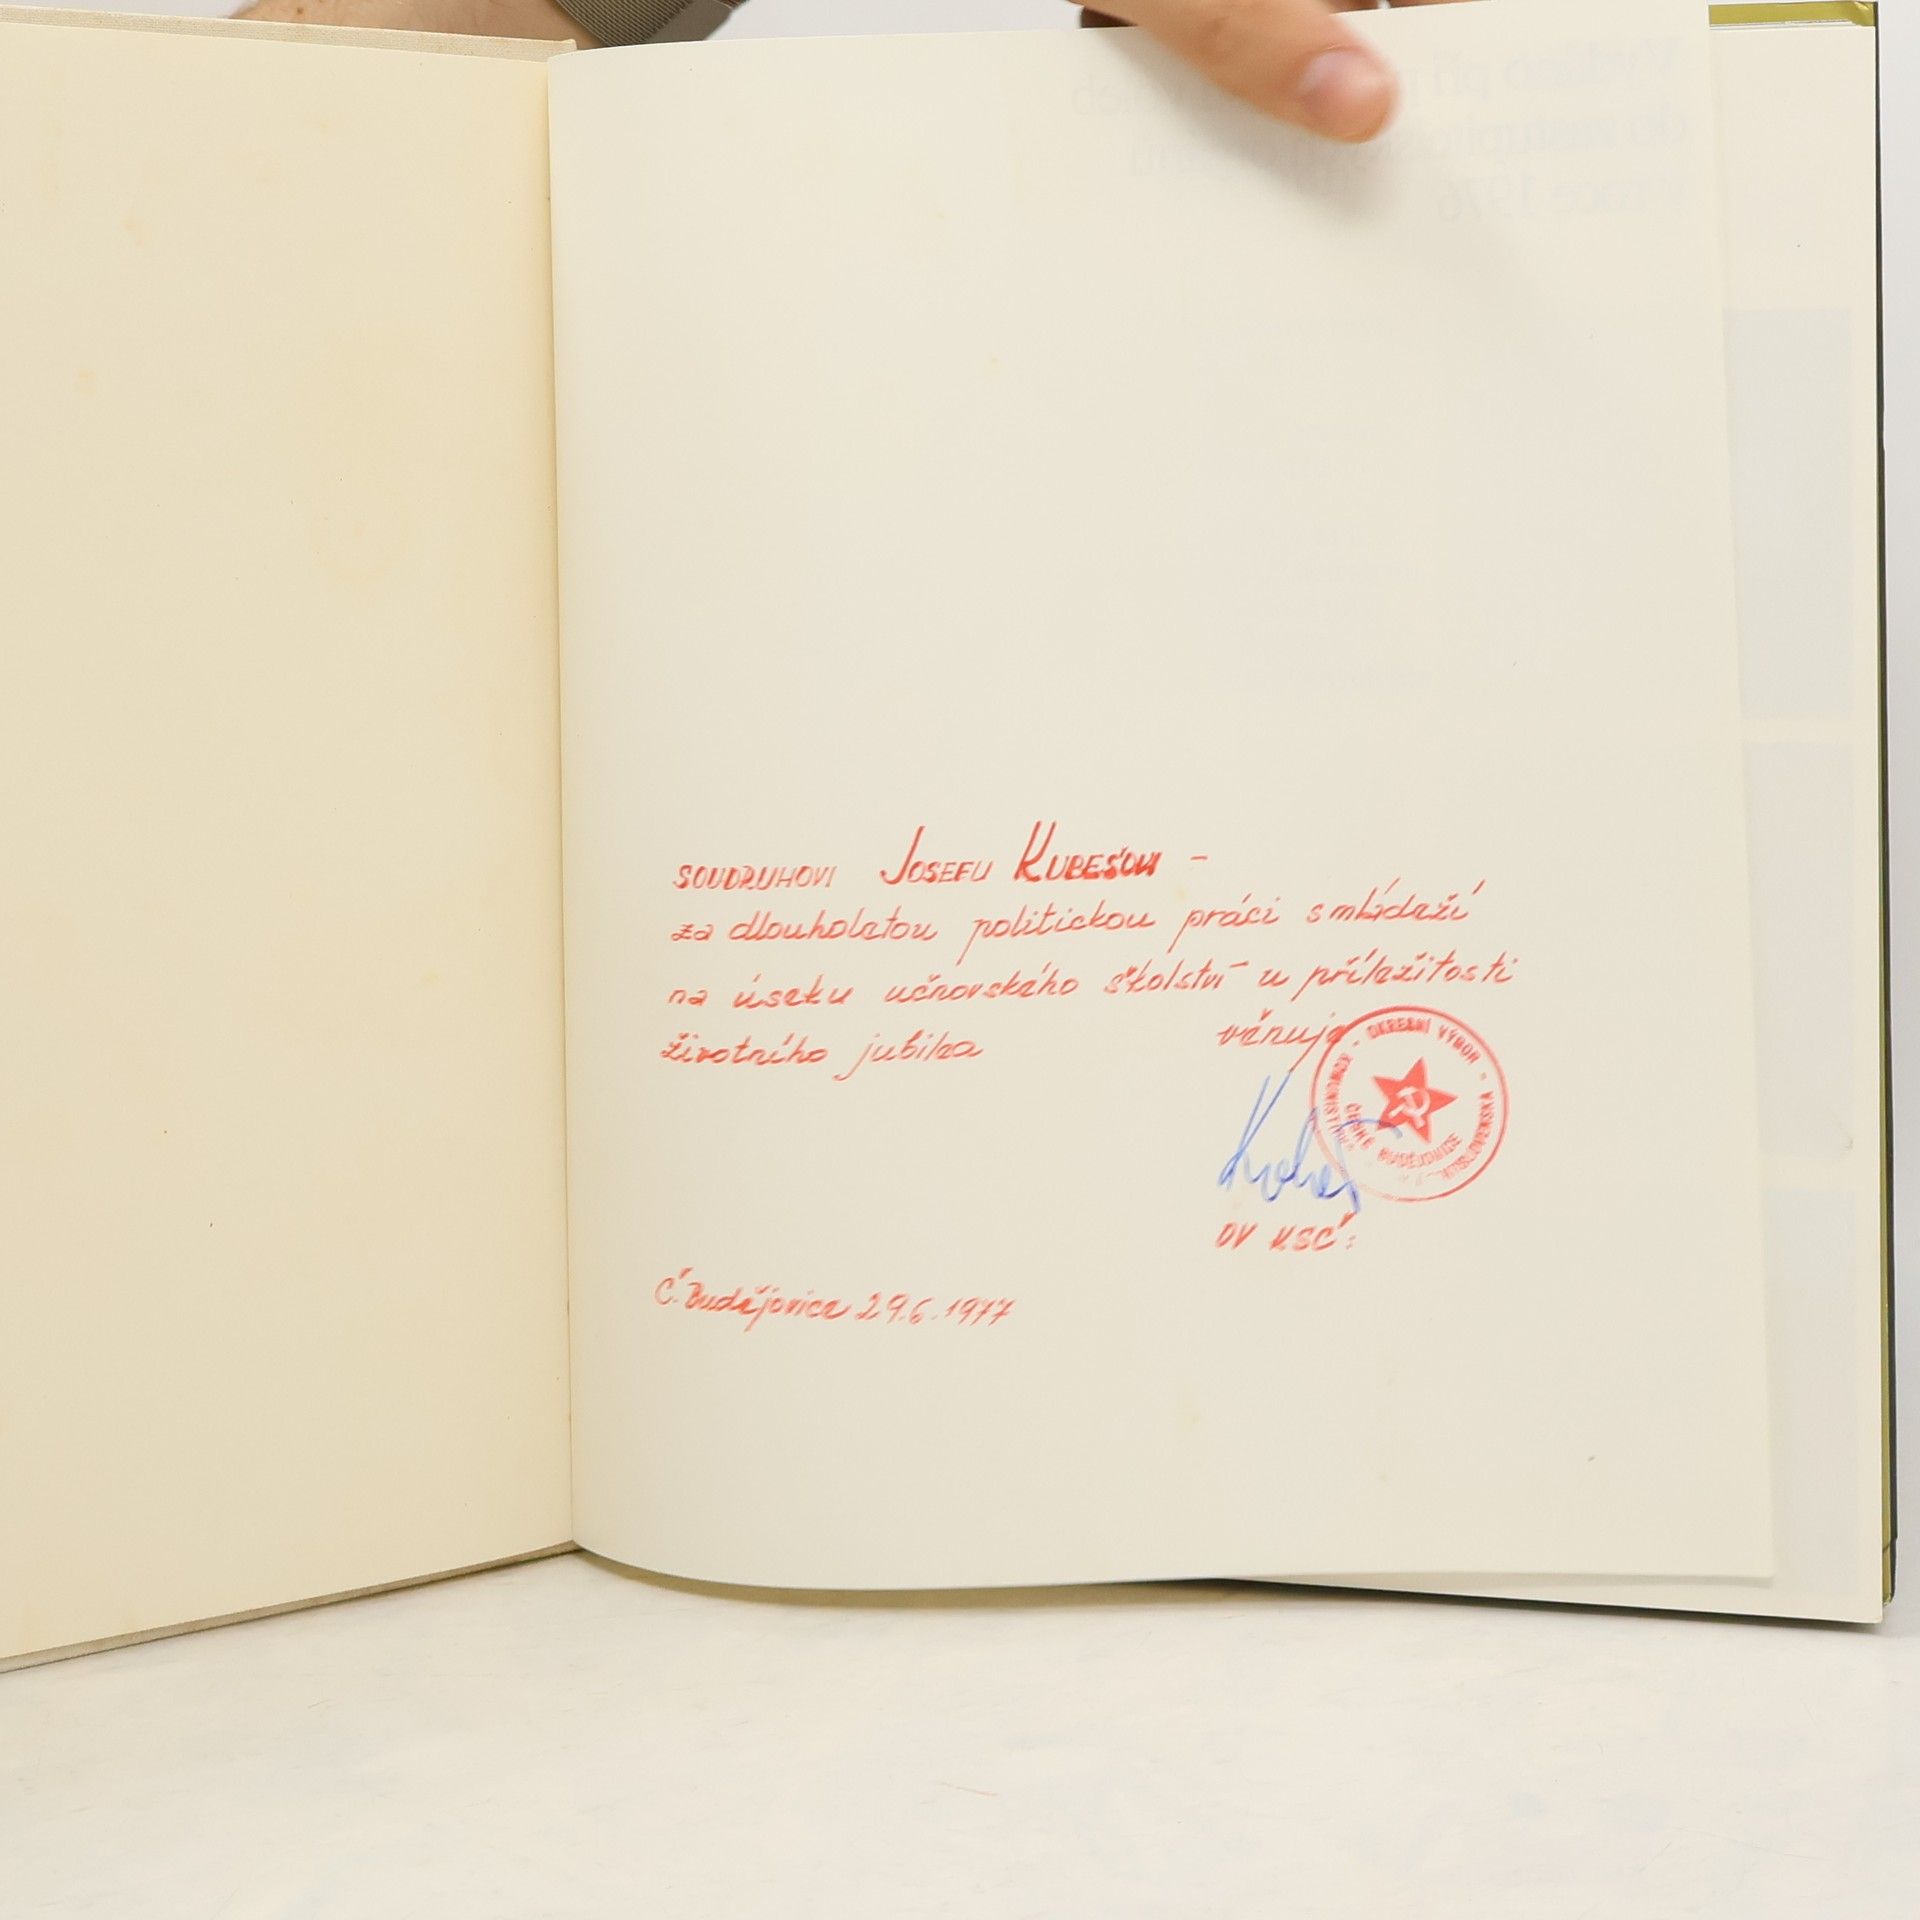 SOUDRUHOVI JOSEFU KUBEŠOVI –
za dlouholetou politickou práci s mládeží
na úseku učňovského školství u příležitosti
životního jubilea věnuje
OKRESNÍ VÝBOR
ČESKÉ BUDĚJOVICE
OV KSČ:
Č. Budějovice 29.6.1977